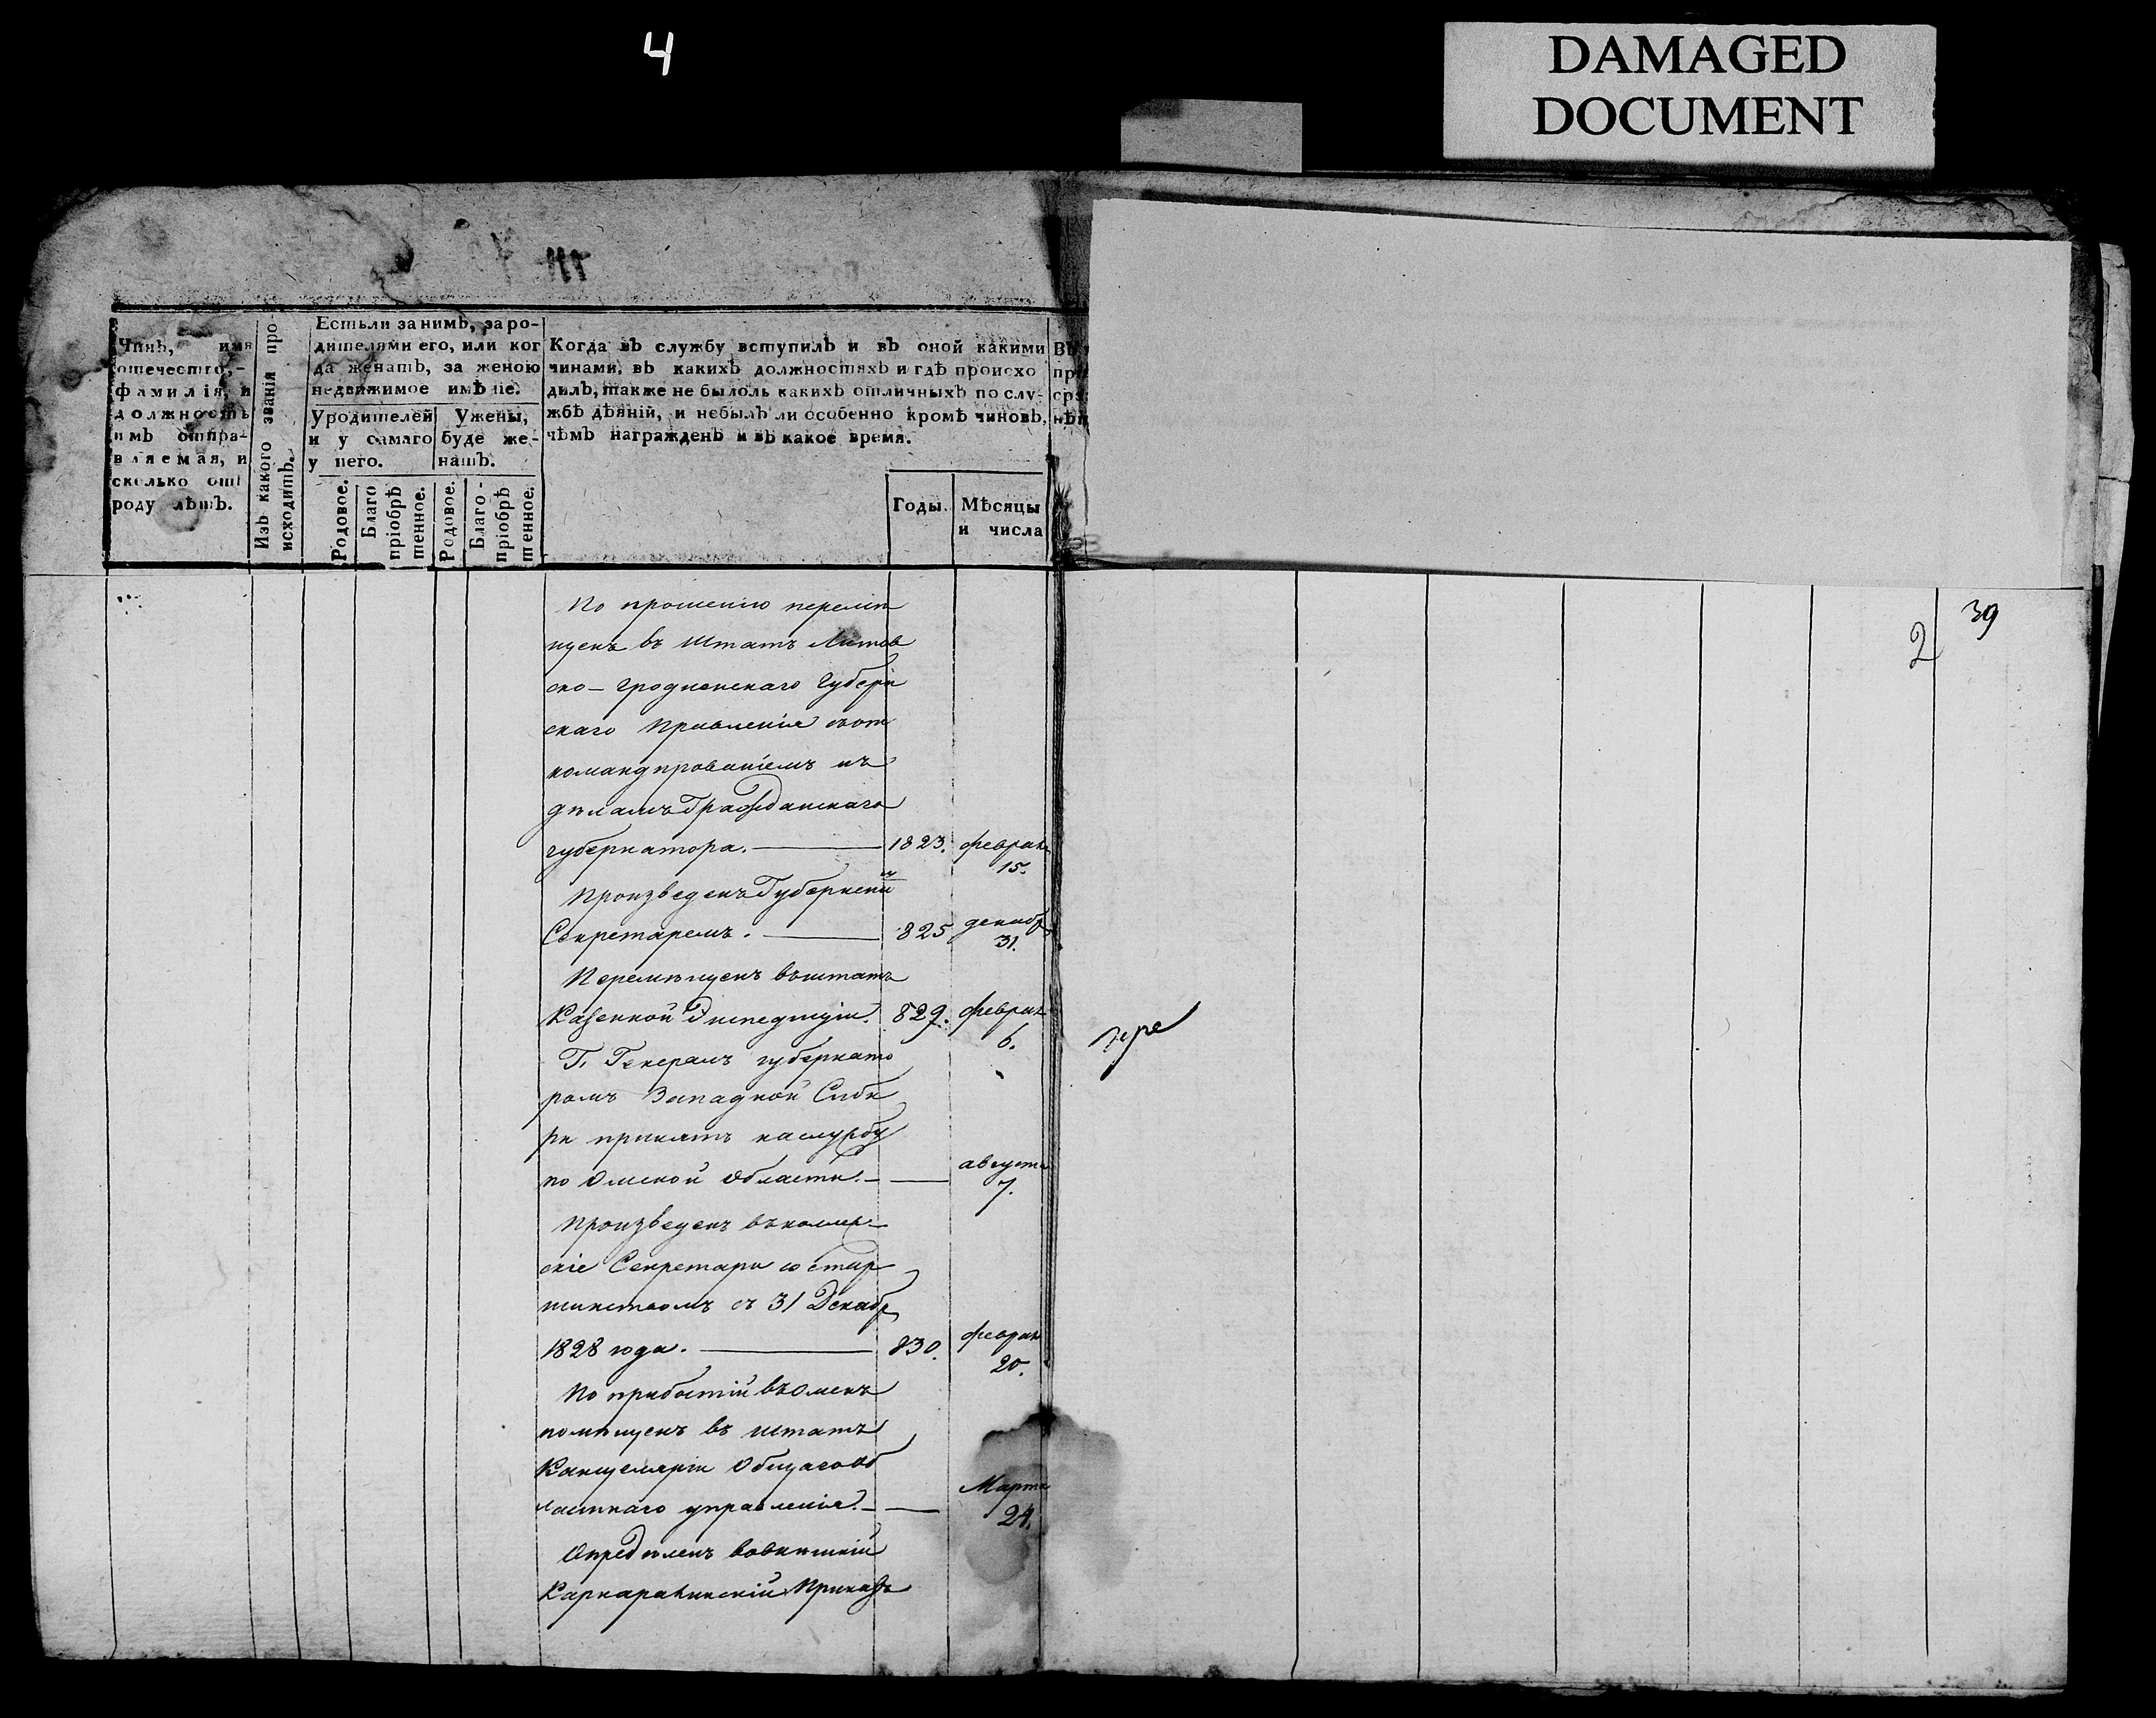 4
DAMAGED
DOCUMENT
Чинъ, имя
отечество,-
фамилія, и
должность
имъ отпра-
вляемая, и
сколько отъ
роду лѣтъ.
Изъ какого званія про-
исходитъ.
Естьли за нимъ, за ро-
дителями его, или ког
да женатъ, за женою
недвижимое имѣніе.
Уродителей
и у самаго
у него.
Ужены,
буде же-
натъ.
Родовое.
Благо
пріобрѣ
тенное.
Родовое.
Благо-
пріобрѣ
тенное.
Когда въ службу вступилъ и въ оной какими
чинами, въ какихъ должностяхъ и гдѣ происхо
дилъ, также не былоль какихъ отличныхъ по слу-
жбѣ дѣяній, и небылъ ли особенно кромѣ чиновъ,
чѣмъ награжденъ и въ какое время.
Годы.
Мѣсяцы
и числа
По прошенію перемѣ
щенъ въ Штатъ Литов
ско-Гродненскаго Губерн
скаго Правленія съот
командированіемъ къ
дѣламъ Гражданскаго
губернатора. 1823. феврал.
15.
Произведенъ Губернски
м
Секретаремъ. 825 декабр
31.
Перемѣщенъ въштатъ
Казенной Экспедиціи. 829. феврал
6.
Г. Генералъ губернато
ромъ Западной Сиби
ри принятъ наслужбу
по Омской Области. августа
7.
Произведенъ въколле-
скіе Секретари со стар
шинствомъ съ 31 Декабр
1828 года. 830. феврал
20.
По прибытіи въОмскъ
помѣщенъ въ штатъ
Канцеляріи Общаго об
ластнаго управленія. Марта
24.
Опредѣленъ вовнѣшній
Каркаралинскій Приказъ
2
39